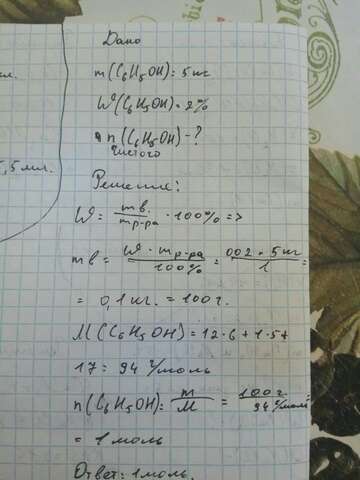 Дано
m(C₆H₅OH) = 5 кг
W(C₆H₅OH) = 2%
n(C₆H₅OH) - ?
чистого
5 мл.
Решение:
W = mв. / mр-ра · 100% =>
mв = W · mр-ра / 100% = 002 · 5 кг / 1 =
= 0,1 кг. = 100 г.
M(C₆H₅OH) = 12·6 + 1·5 +
17 = 94 г/моль
n(C₆H₅OH) = m / M = 100 г / 94 г/моль =
= 1 моль
Ответ: 1 моль.